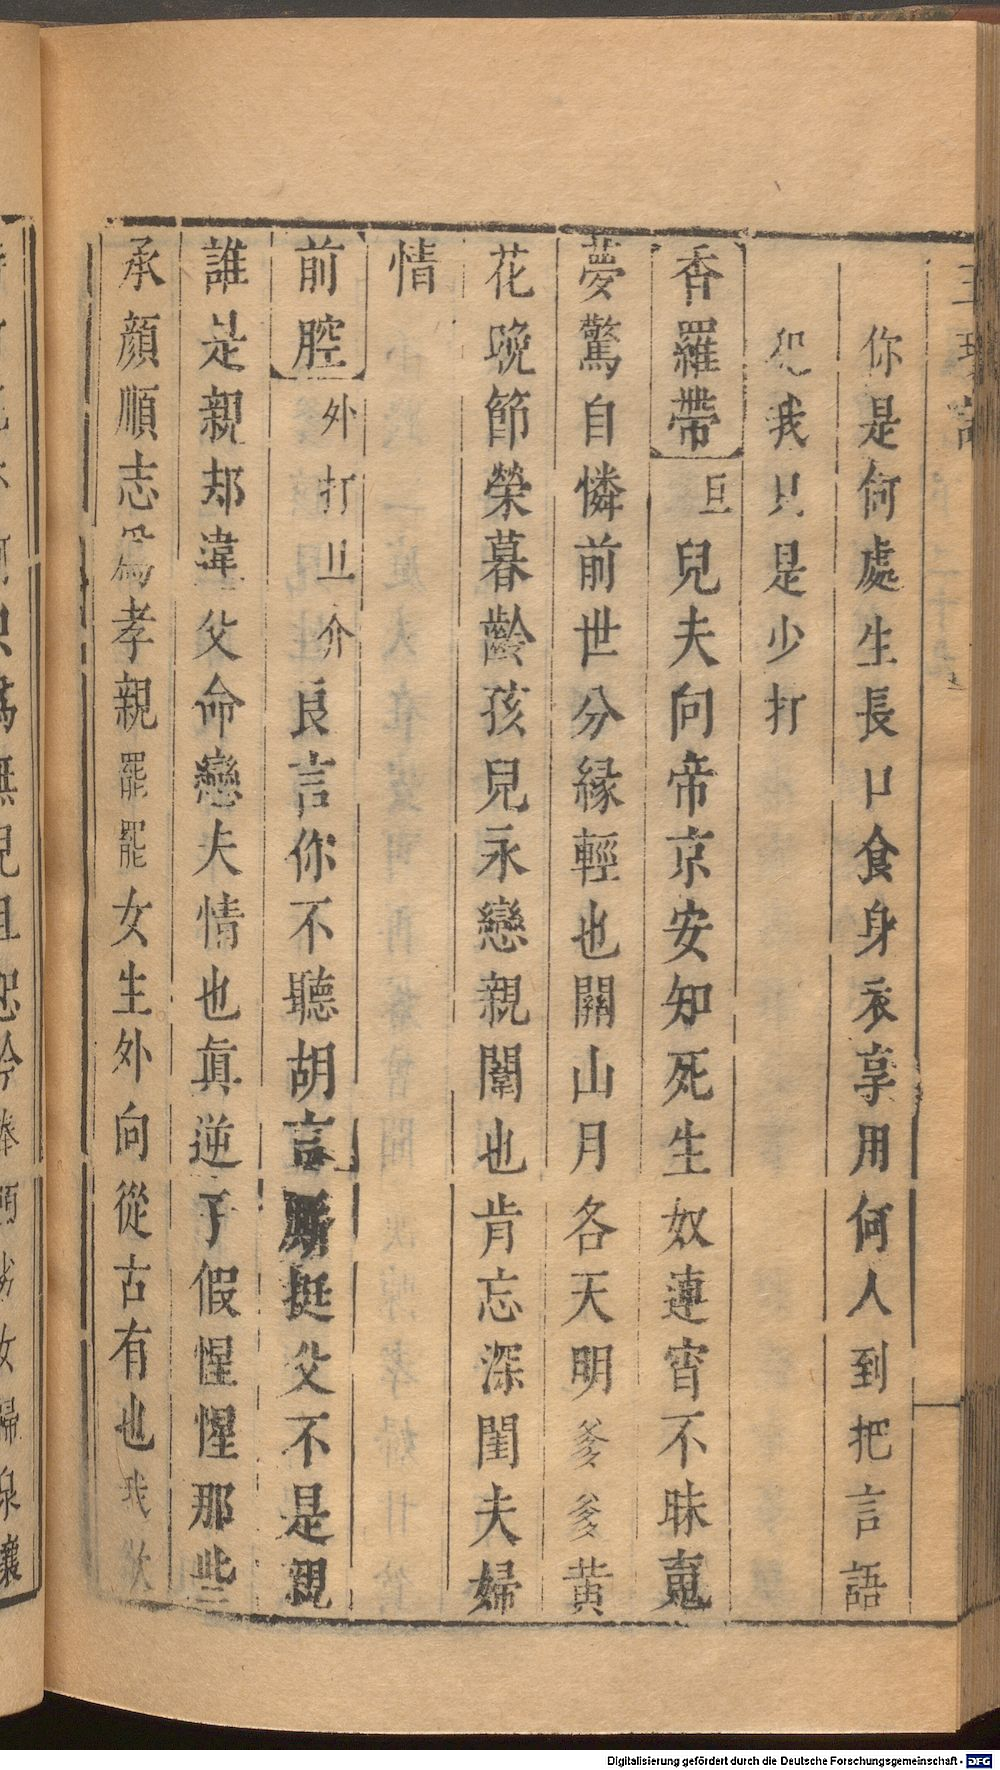 你是何處生長口食身衣享用何人到把言語
我只是少打
香羅帶 旦 兒夫向帝京安知死生奴連宵不昧䰟
夢驚自憐前世分緣輕也關山月各天明爹爹黃
花晚節榮暮齡孩兒永戀親闈也肯忘深閨夫婦
情
前腔 外打旦介 良言你不聽胡言廝挺父不是親
誰是親却違父命戀夫情也眞逆子假惺惺那些
承顏順志爲孝親罷罷女生外向從古有也我欲
Digitalisierung gefördert durch die Deutsche Forschungsgemeinschaft - DFG